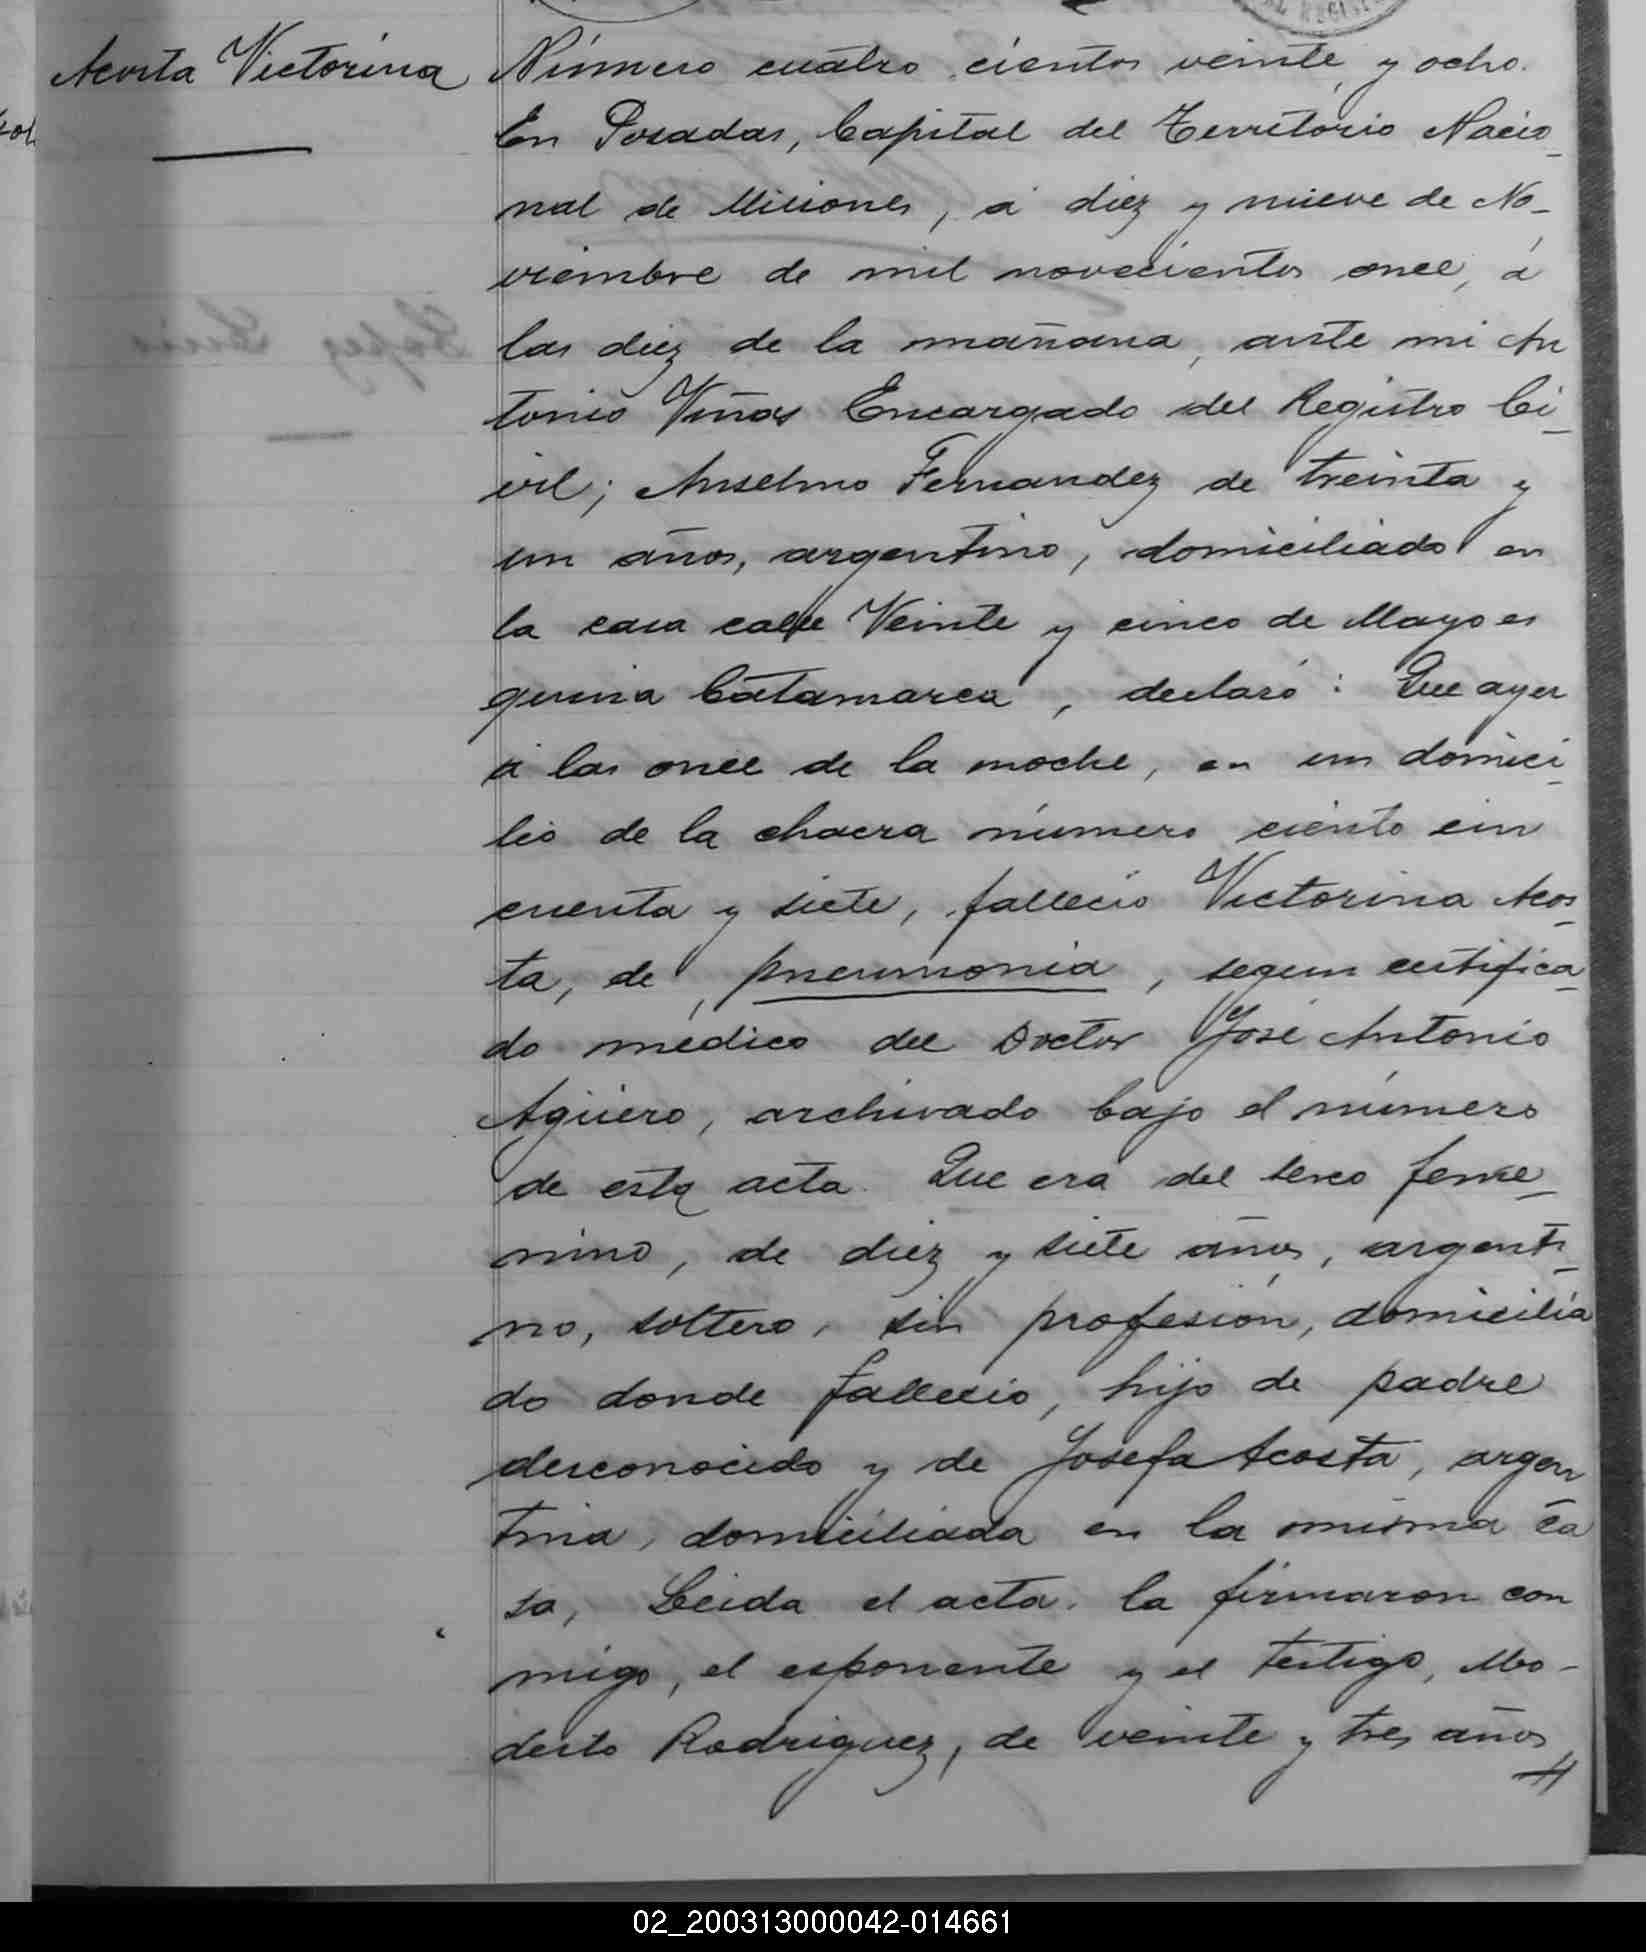 Acosta Victorina
Número cuatro cientos veinte y ocho.
En Posadas, Capital del Territorio Nacio_
nal de Misiones, á diez y nueve de No_
viembre de mil novecientos once, á
las diez de la mañana, ante mi An
tonio Viñas Encargado del Registro Ci_
vil; Anselmo Fernandez de treinta y
un años, argentino, domiciliado en
la casa calle Veinte y cinco de Mayo es
quina Catamarca, declaró: Que ayer
á las once de la noche, en un domici_
lio de la chacra número ciento cin
cuenta y siete, falleció Victorina Acos_
ta, de pneumonia, segun certifica_
do médico del Doctor José Antonio
Agüero, archivado bajo el número
de esta acta. Que era del sexo feme_
nino, de diez y siete años, argenti_
no, soltero, sin profesión, domicilia
do donde falleció, hijo de padre
desconocido y de Josefa Acosta, argen
tina, domiciliada en la misma ca
sa, Leida el acta, la firmaron con
migo, el esponente y el testigo, Mo-
desto Rodriguez, de veinte y tres años
02_200313000042-014661